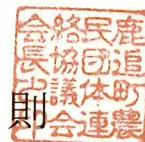 鹿追町農
民団体連
絡協議会
会長之印
則